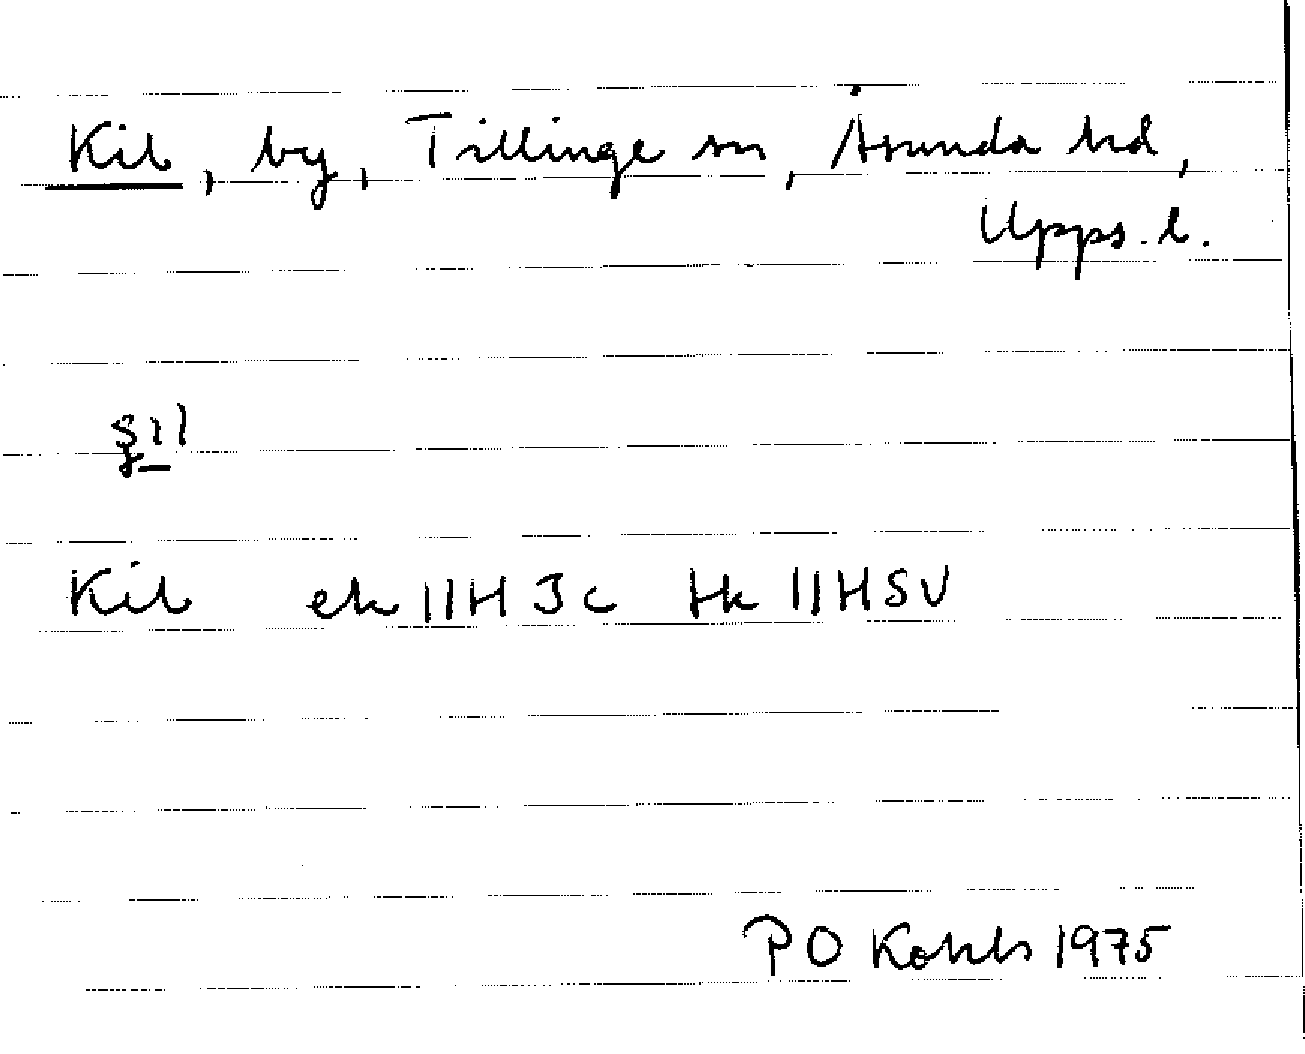 Kil, by, Tillinge sn, Åsunda hd,
Upps. l.
Kil ek 11H 3c Hk 11HSV
P O 1975